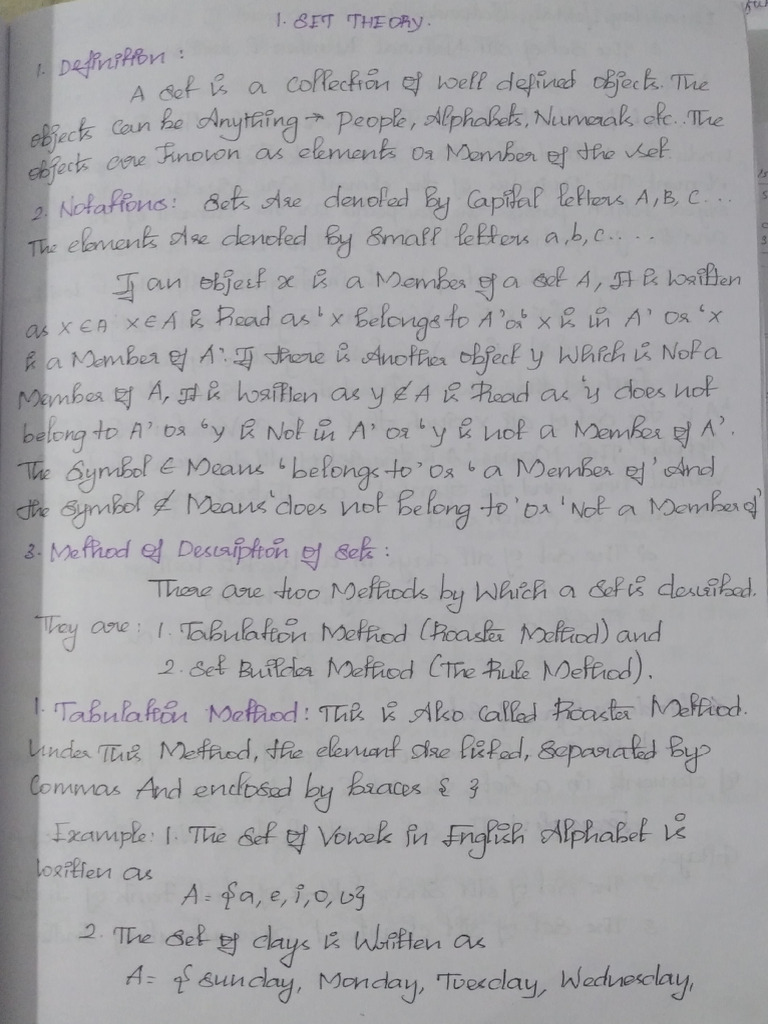 1. SET THEORY.
1. Definition:
A set is a collection of well defined objects. The
objects can be Anything → People, Alphabets, Numerals etc.. The
objects are known as elements or Member of the set
2. Notations: Sets Are denoted by Capital letters A, B, C...
The elements Are denoted by small letters a, b, c....
If an object x is a Member of a set A, It is written
as x ∈ A x ∈ A is Read as 'x belongs to A' or 'x is in A' or 'x
is a Member of A'. If there is Another object y Which is Not a
Member of A, It is written as y ∉ A is Read as 'y does not
belong to A' or 'y is Not in A' or 'y is not a Member of A'.
The Symbol ∈ Means 'belongs to' Or 'a Member of' And
the symbol ∉ Means 'does not belong to' or 'Not a Member of'
3. Method of Description of Sets:
There are two Methods by Which a set is described.
They are: 1. Tabulation Method (Roaster Method) and
2. Set Builder Method (The Rule Method).
1. Tabulation Method: This is Also Called Roaster Method.
Under This Method, the element Are listed, separated by
Commas And enclosed by braces { }
Example: 1. The Set of Vowels in English Alphabet is
written as
A = {a, e, i, o, u}
2. The set of days is Written as
A = { Sunday, Monday, Tuesday, Wednesday,